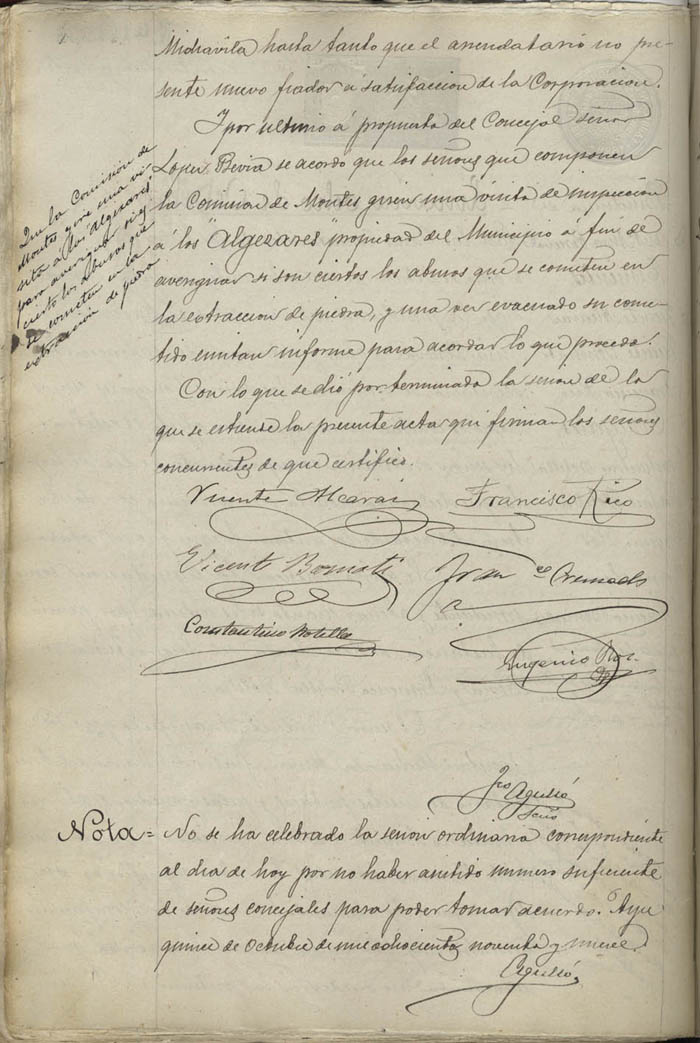 Midravila hasta tanto que el arrendatario no pre-
sente nuevo fiador a satisfaccion de la Corporacion.
Y por ultimo á propuesta del Concejal señor
Lopez Bevia se acordó que los señores que componen
la Comision de Montes giren una visita de inspección
á los "Algezares" propiedad del Municipio a fin de
averiguar si son ciertos los abusos que se cometen en
la extraccion de piedra, y una vez evacuado su come-
tido emitan informe para acordar lo que proceda.
Con lo que se dió por terminada la sesion de la
que se estiende la presente acta que firman los señores
concurrentes de que certifico.
Que la Comisión de
Montes gire una vi-
sita a los "Algezares"
para averiguar si es
cierto los abusos que
se cometen en la
extracción de piedra
Vicente Alcaraz Francisco Rico
Vicente Bernat Fran.co Cremades
Constantino Botella
Eugenio Ros
Fco Agulló
Srio
Nota = No se ha celebrado la sesion ordinaria correspondiente
al dia de hoy por no haber asistido numero suficiente
de señores concejales para poder tomar acuerdo.
quince de Octubre de mil ochocientos noventa y nueve.
Agulló